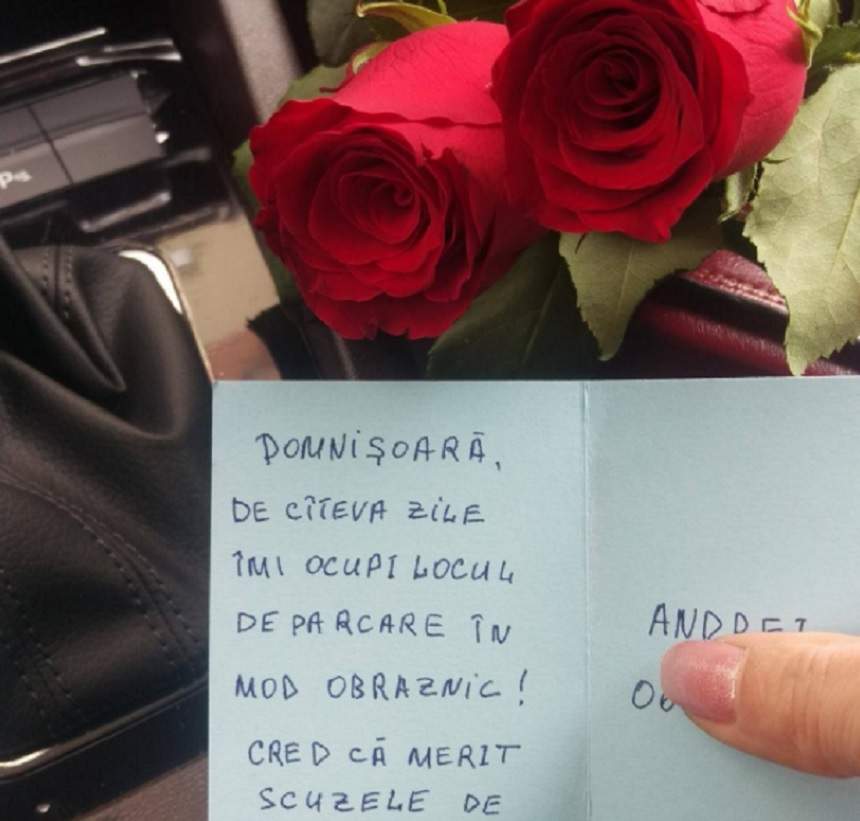 DOMNIȘOARĂ,
DE CÎTEVA ZILE
ÎMI OCUPI LOCUL
DE PARCARE ÎN
MOD OBRAZNIC!
CRED CĂ MERIT
SCUZELE DE
ANDREI